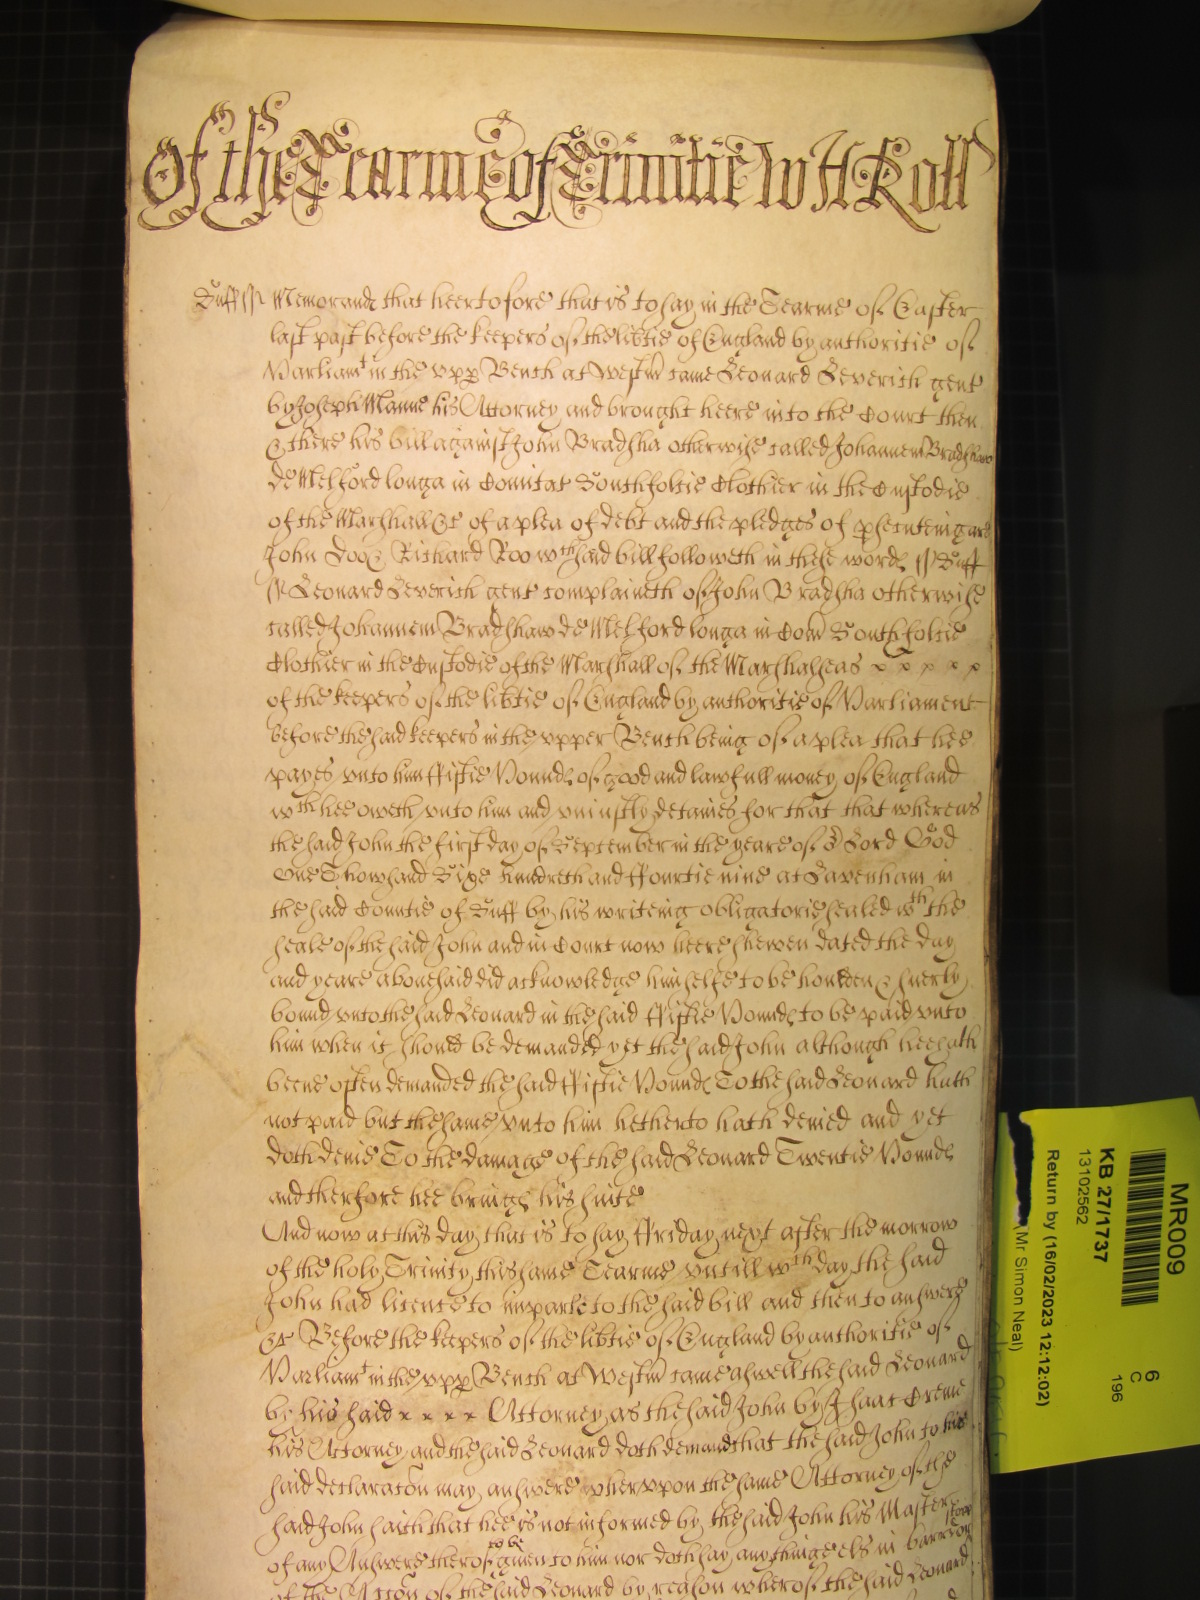 Of the Tearme of Trinitie wth Roll
Suff ss Memorand that heertofore that is to say in the Tearme of Easter
last past before the keepers of the libtie of England by authoritie of
Parliamt in the vpp Bench at Westm came Leonard Leverich gent
by Joseph Manne his Attorney and brought heere into the Court then
& there his bill against John Bradsha otherwise called Johannem Bradshaw
de Melford longa in Comitat Southfoltie Clothier in the Custodie
of the Marshall &c of a plea of debt and the pledges of psecuteing are
John Doo & Richard Roo wch said bill followeth in these words ss Suff
ss Leonard Leverich gent complaineth of John Bradsha otherwise
called Johannem Bradshaw de Melford longa in Com Southfoltie
Clothier in the Custodie of the Marshall of the Marshalseas x x x x x
of the keepers of the libtie of England by authoritie of Parliament
before the said keepers in the vpper Bench being of a plea that hee
payes vnto him ffiftie Pounds of good and lawfull money of England
wch hee oweth vnto him and vniustly detaines for that that whereas
the said John the first day of September in the yeare of or Lord God
One Thowsand Sixe hundreth and ffourtie nine at Lavenham in
the said Countie of Suff by his writeing obligatorie sealed wth the
seale of the said John and in Court now heere shewen dated the day
and yeare abouesaid did acknowledge himselfe to be houlden & suerly
bound vnto the said Leonard in the said ffiftie Pounds to be paid vnto
him when it should be demanded yet the said John although hee hath
beene often demanded the said ffiftie Pounds To the said Leonard hath
not paid but the same vnto him hetherto hath denied and yet
doth denie To the damage of the said Leonard Twentie Pounds
and therfore hee brings his suite
And now at this day that is to say ffriday next after the morrow
of the holy Trinity this same Tearme vntill wch day the said
John had licence to imparle to the said bill and then to answere
&c Before the keepers of the libtie of England by authoritie of
Parliamt in the vpp Bench at Westm came aswell the said Leonard
by his said x x x x Attorney as the said John by Isaac Creme
his Attorney and the said Leonard doth demand that the said John to his
said declaracon may answere wherevpon the same Attorney of the
said John saith that hee is not informed by the said John his Master
of any Answere therof to be giuen to him nor doth say any thinge els in barr
of the Accon of the said Leonard by reason wherof the said Leonard
MR009
6
C
196
KB 27/1737
13102562
Return by (16/02/2023 12:12:02)
(Mr Simon Neal)